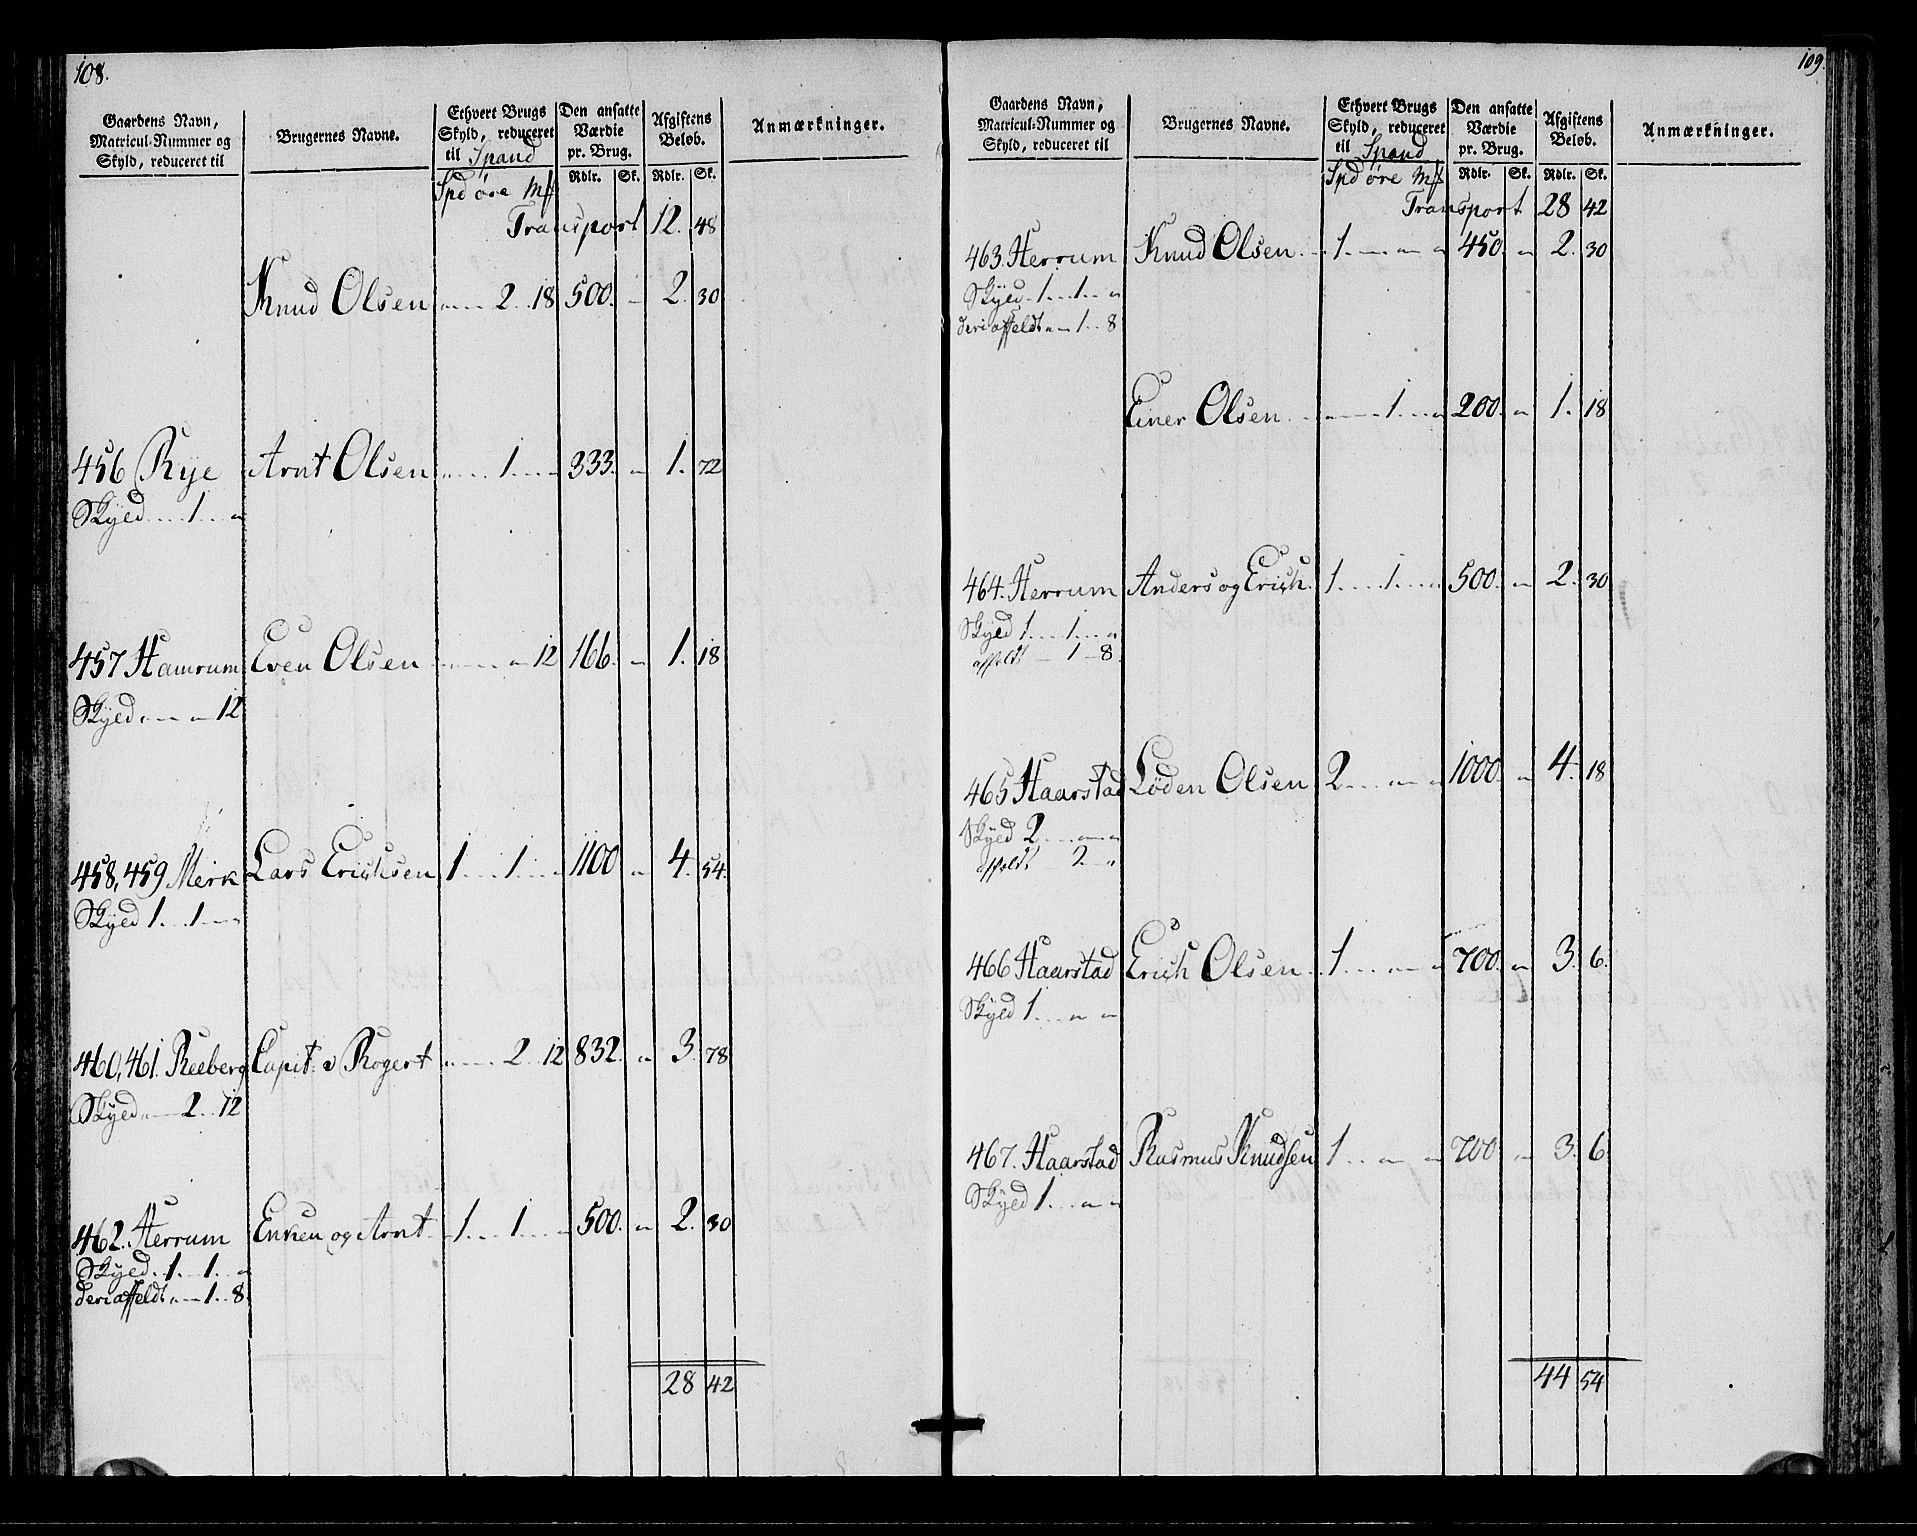 108.
Gaardens Navn, Matricul-Nummer og Skyld, reduceret til | Brugernes Navne. | Ethvert Brugs Skyld, reduceret til Spand | Den ansatte Værdie pr. Brug. | Afgiftens Beløb. | Anmærkninger.
Spd øre Mk | Rdlr. | Sk. | Rdlr. | Sk.
Transport 12. 48
Knud Olsen „ 2 .. 18 500. „ 2. 30
456 Rye Arnt Olsen „ 1 .. „ 333. „ 1. 72
Skyld .... 1 ... „
457 Hamrum Even Olsen „ „ 12 166. „ 1. 18
Skyld „ „ 12
458, 459 Merk Lars Erichsen 1 .... 1 ... „ 1100 „ 4. 54.
Skyld 1 ... 1 „
460, 461. Reeberg Capit: v Rogert „ 2 .. 12 832. „ 3. 78
Skyld „ 2 .. 12
462. Herrum og Arnt 1 .... 1 ... „ 500. „ 2. 30
Skyld .. 1 ... 1 .. „
deri affeldt „ 1 .. 8
28 42
109.
Gaardens Navn, Matricul-Nummer og Skyld, reduceret til | Brugernes Navne. | Ethvert Brugs Skyld, reduceret til Spand | Den ansatte Værdie pr. Brug. | Afgiftens Beløb. | Anmærkninger.
Spd øre Mk | Rdlr. | Sk. | Rdlr. | Sk.
Transport 28 42
463. Herrum Knud Olsen 1 .... „ „ 450. „ 2. 30
Skyld .. 1 ... 1 .. „
deri affeldt „ 1 .. 8
Einer Olsen „ 1 ... „ 200. „ 1. 18
464. Herrum Anders og Erich. 1 .... 1 .... „ 500. „ 2. 30
Skyld 1 .... 1 ... „
affeldt 1 8
465 Haarstad Løden Olsen 2 .... „ „ 1000. „ 4. 18
Skyld 2 ... „ „
affeldt 2 „
466 Haarstad Erich Olsen 1 .... „ „ 700. „ 3. 6.
Skyld 1 .... „ „
467. Haarstad Rasmus Knudsen 1 ... „ „ 700 „ 3. 6
Skyld 1 ... „ „
44 54